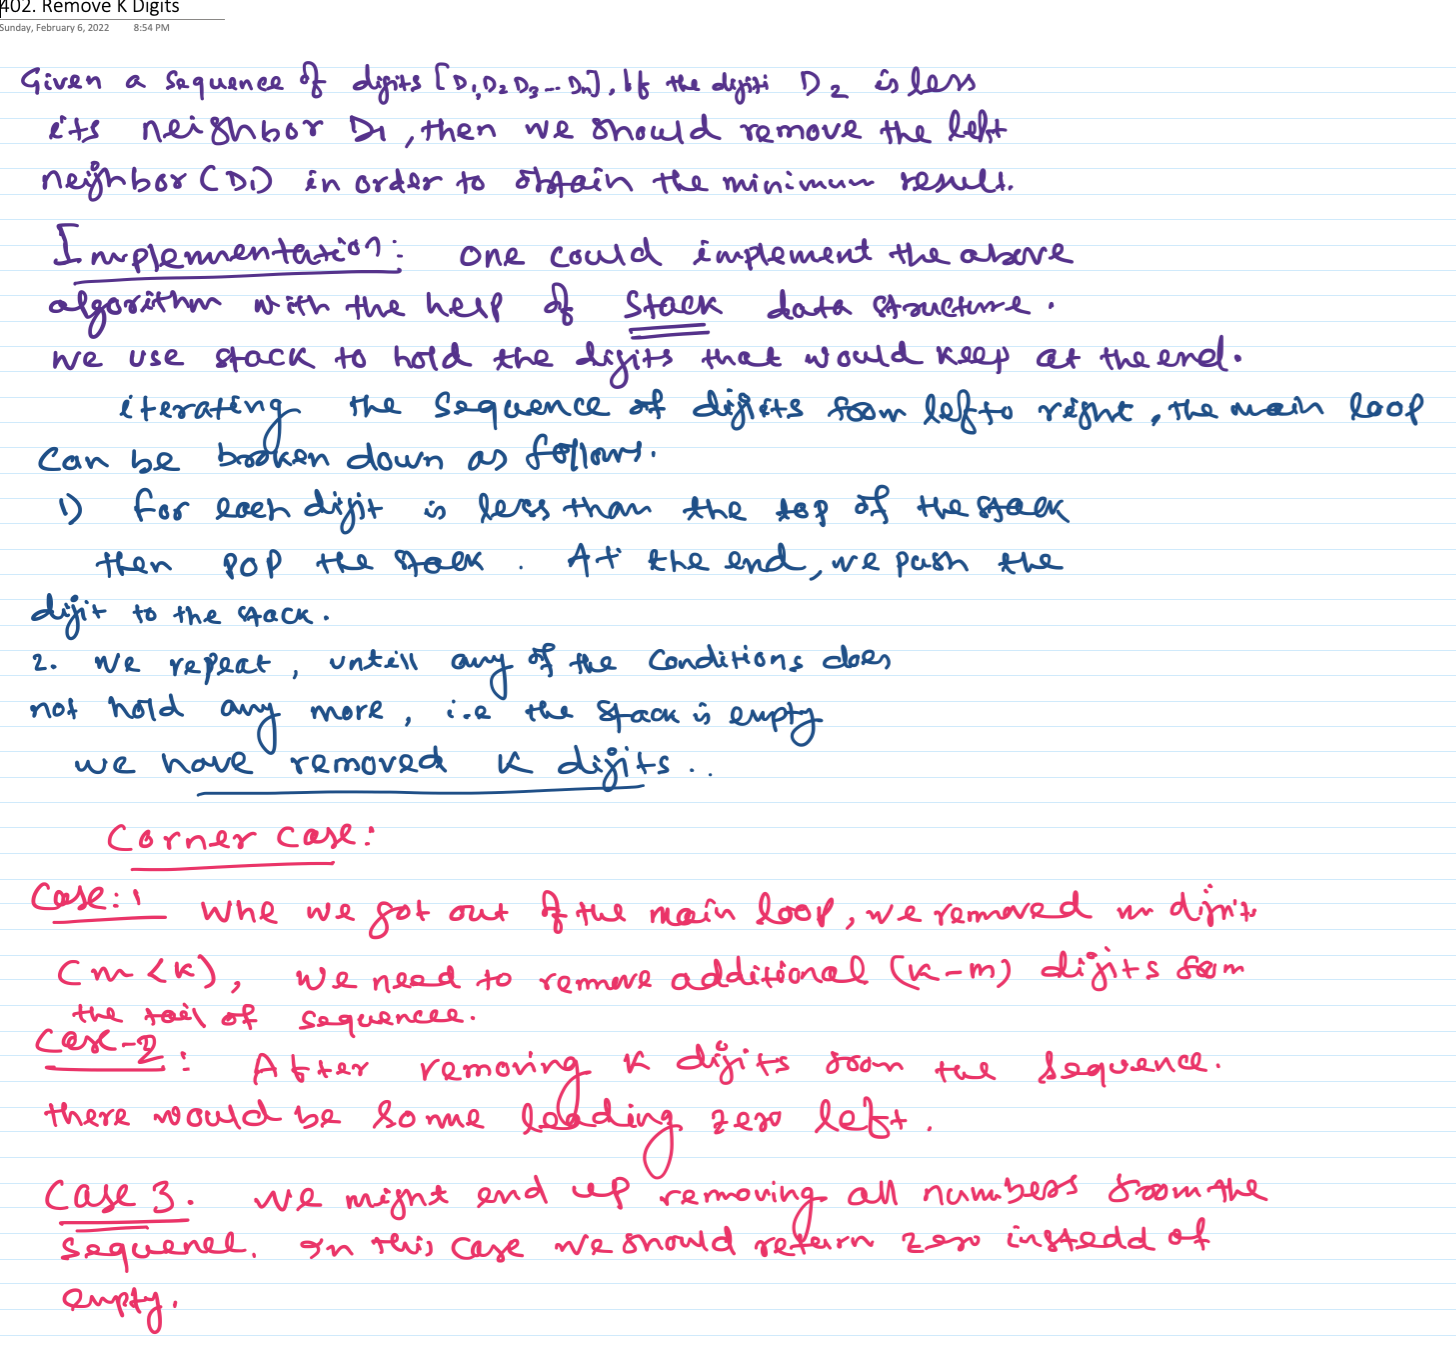 402. Remove K Digits
Sunday, February 6, 2022 8:54 PM
Given a sequence of digits [D1, D2 D3 -- Dn], If the digiti D2 is less
its neighbor D1, then we should remove the left
neighbor (D1) in order to obtain the minimum result.
Implementation: one could implement the above
algorithm with the help of stack data structure.
we use stack to hold the digits that would keep at the end.
iterating the sequence of digists from left to right, the main loop
can be broken down as follows.
1) for each digit is less than the top of the stack
then pop the stack. At the end, we push the
digit to the stack.
2. we repeat, untill any of the conditions does
not hold any more, i.e the stack is empty
we have removed K digits..
Corner case:
Case:1 whe we got out of the main loop, we removed m digits
(m<k), we need to remove additional (k-m) digits from
the tail of sequencee.
Case-2: After removing K digits from the sequence.
there would be some leading zero left.
Case 3. we might end up removing all numbers from the
sequence. In this case we should return zero instedd of
empty.